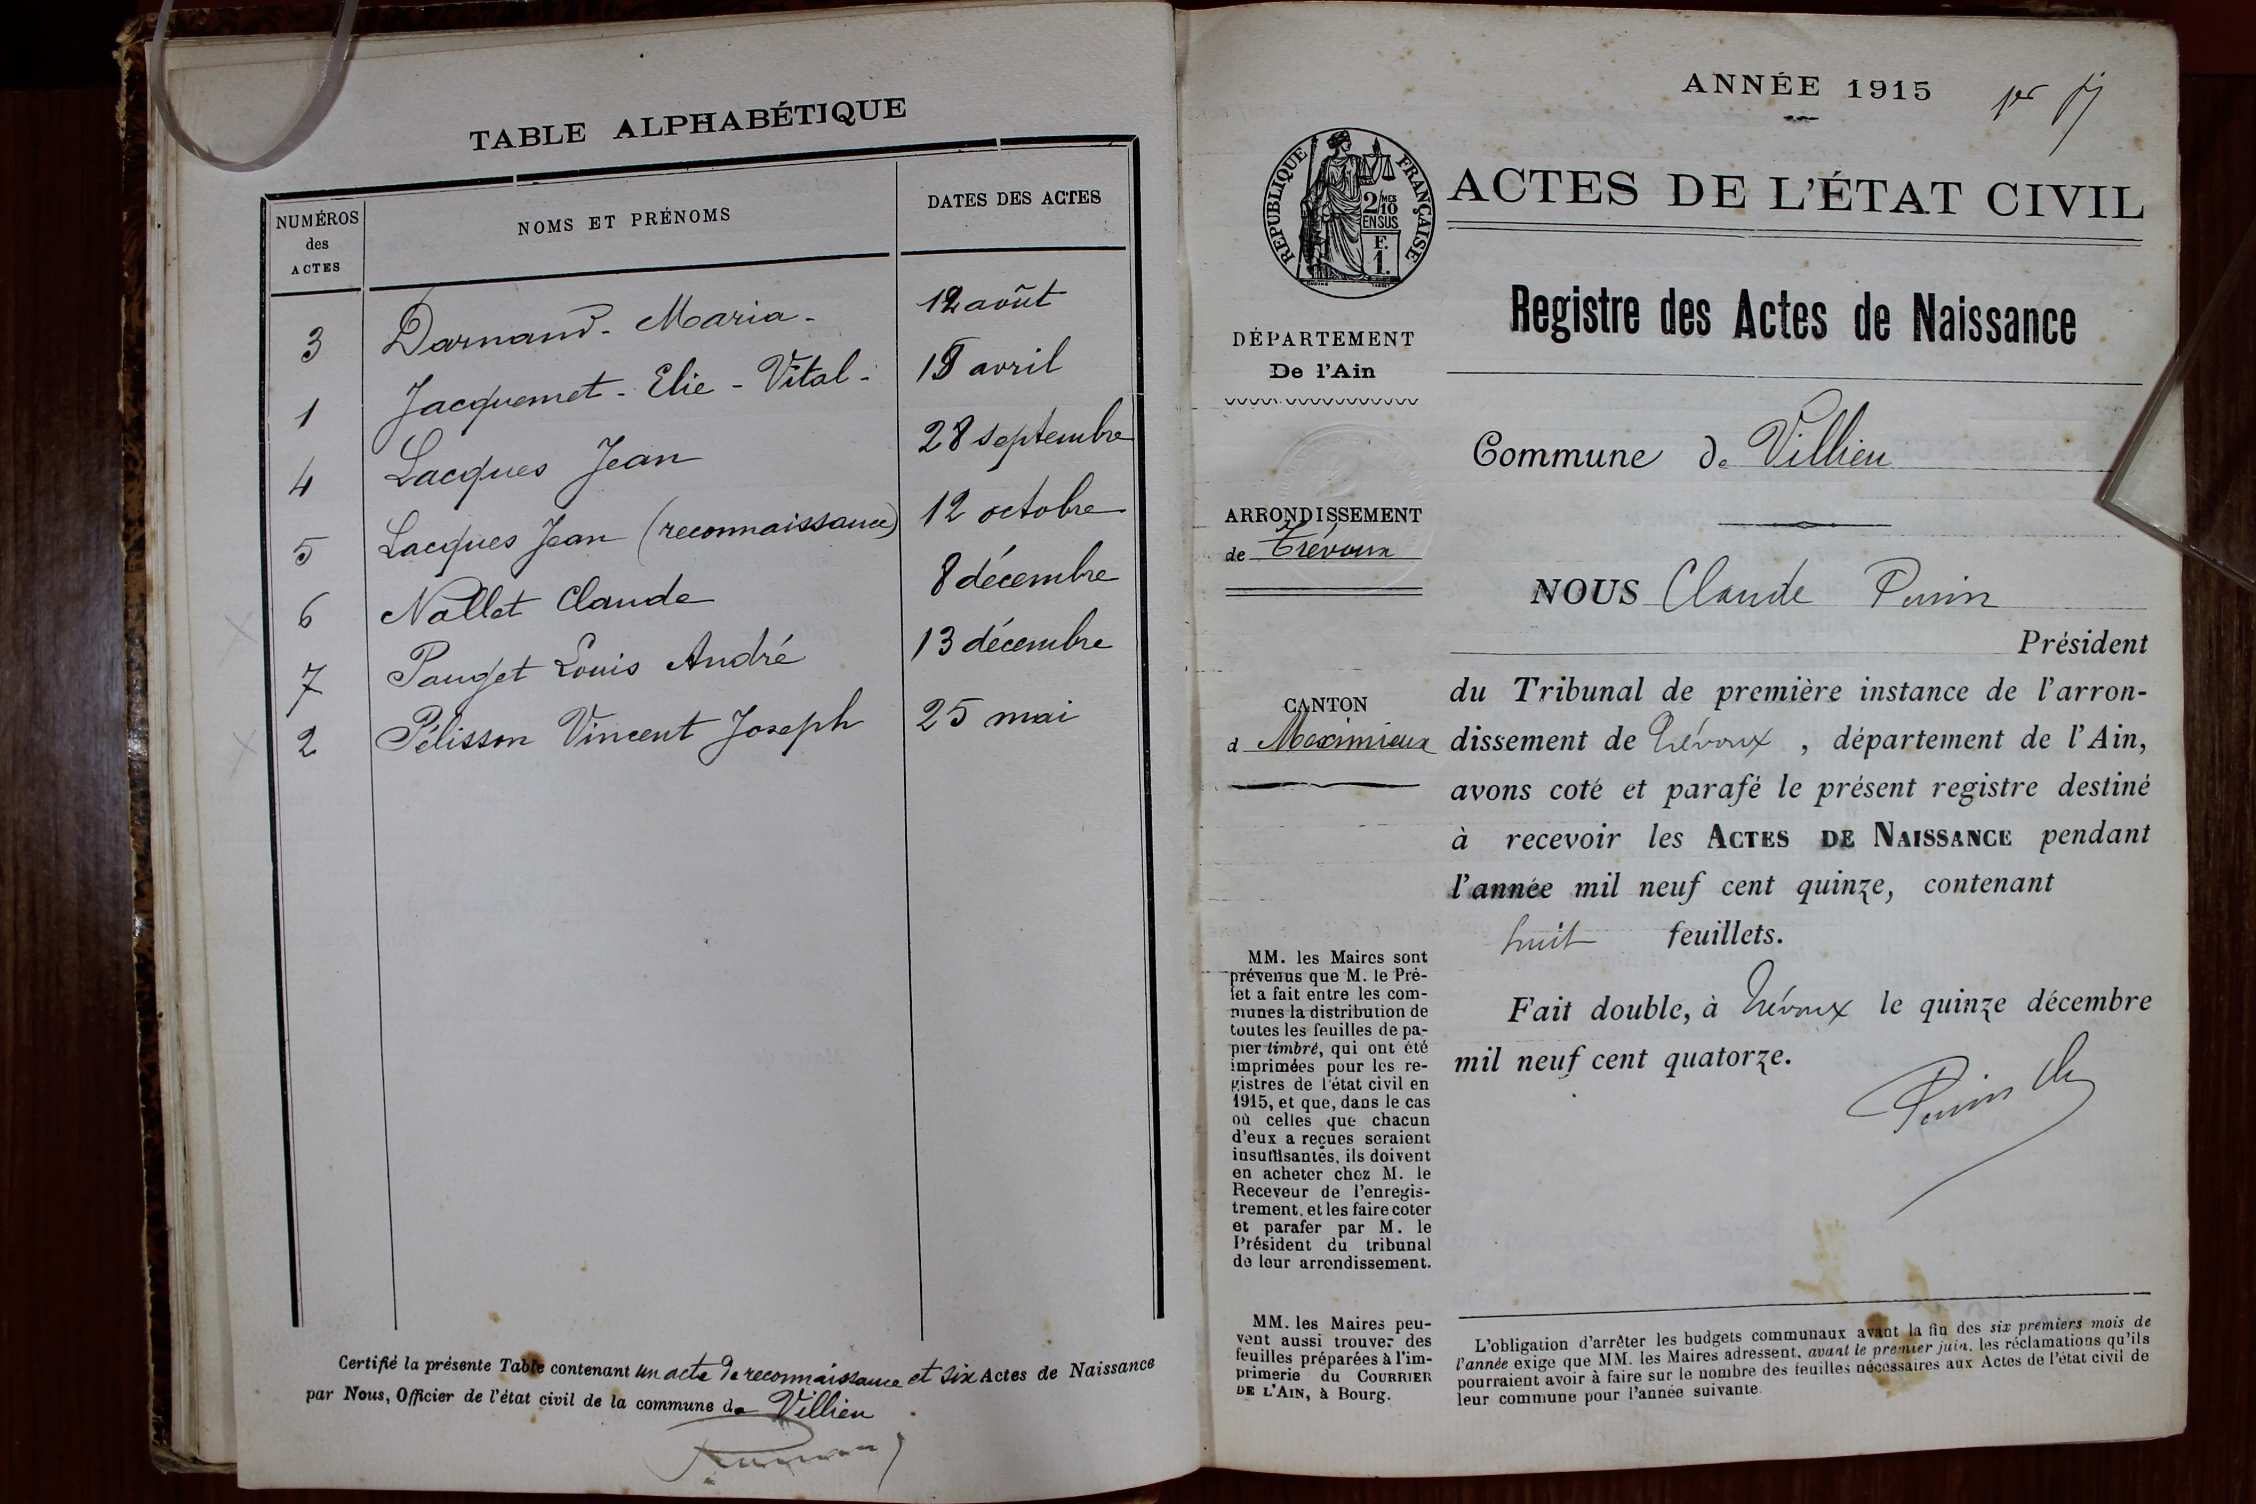 TABLE ALPHABÉTIQUE
NUMÉROS des ACTES
NOMS ET PRÉNOMS
DATES DES ACTES
3 Darnand - Maria - 12 août
1 Jacquemet - Elie - Vital - 18 avril
4 Lacques Jean 28 septembre
5 Lacques Jean (reconnaissance) 12 octobre
6 Nallet Claude 8 décembre
7 Pauget Louis André 13 décembre
2 Pélisson Vincent Joseph 25 mai
Certifié la présente Table contenant un acte de reconnaissance et six Actes de Naissance
par Nous, Officier de l'état civil de la commune de Villieu
ANNÉE 1915
1er
RÉPUBLIQUE FRANÇAISE
2/10
MES
EN SUS
F.
1.
ACTES DE L'ÉTAT CIVIL
Registre des Actes de Naissance
DÉPARTEMENT
De l'Ain
Commune de Villieu
ARRONDISSEMENT
de Trévoux
CANTON
d Meximieux
NOUS Claude Perrin
Président
du Tribunal de première instance de l'arron-
dissement de Trévoux, département de l'Ain,
avons coté et parafé le présent registre destiné
à recevoir les ACTES DE NAISSANCE pendant
l'année mil neuf cent quinze, contenant
huit feuillets.
Fait double, à Trévoux le quinze décembre
mil neuf cent quatorze.
MM. les Maires sont
prévenus que M. le Pré-
fet a fait entre les com-
munes la distribution de
toutes les feuilles de pa-
pier timbré, qui ont été
imprimées pour les re-
gistres de l'état civil en
1915, et que, dans le cas
où celles que chacun
d'eux a reçues seraient
insuffisantes, ils doivent
en acheter chez M. le
Receveur de l'enregis-
trement, et les faire coter
et parafer par M. le
Président du tribunal
de leur arrondissement.
MM. les Maires peu-
vent aussi trouver des
feuilles préparées à l'im-
primerie du COURRIER
DE L'AIN, à Bourg.
L'obligation d'arrêter les budgets communaux avant la fin des six premiers mois de
l'année exige que MM. les Maires adressent, avant le premier juin, les réclamations qu'ils
pourraient avoir à faire sur le nombre des feuilles nécessaires aux Actes de l'état civil de
leur commune pour l'année suivante.